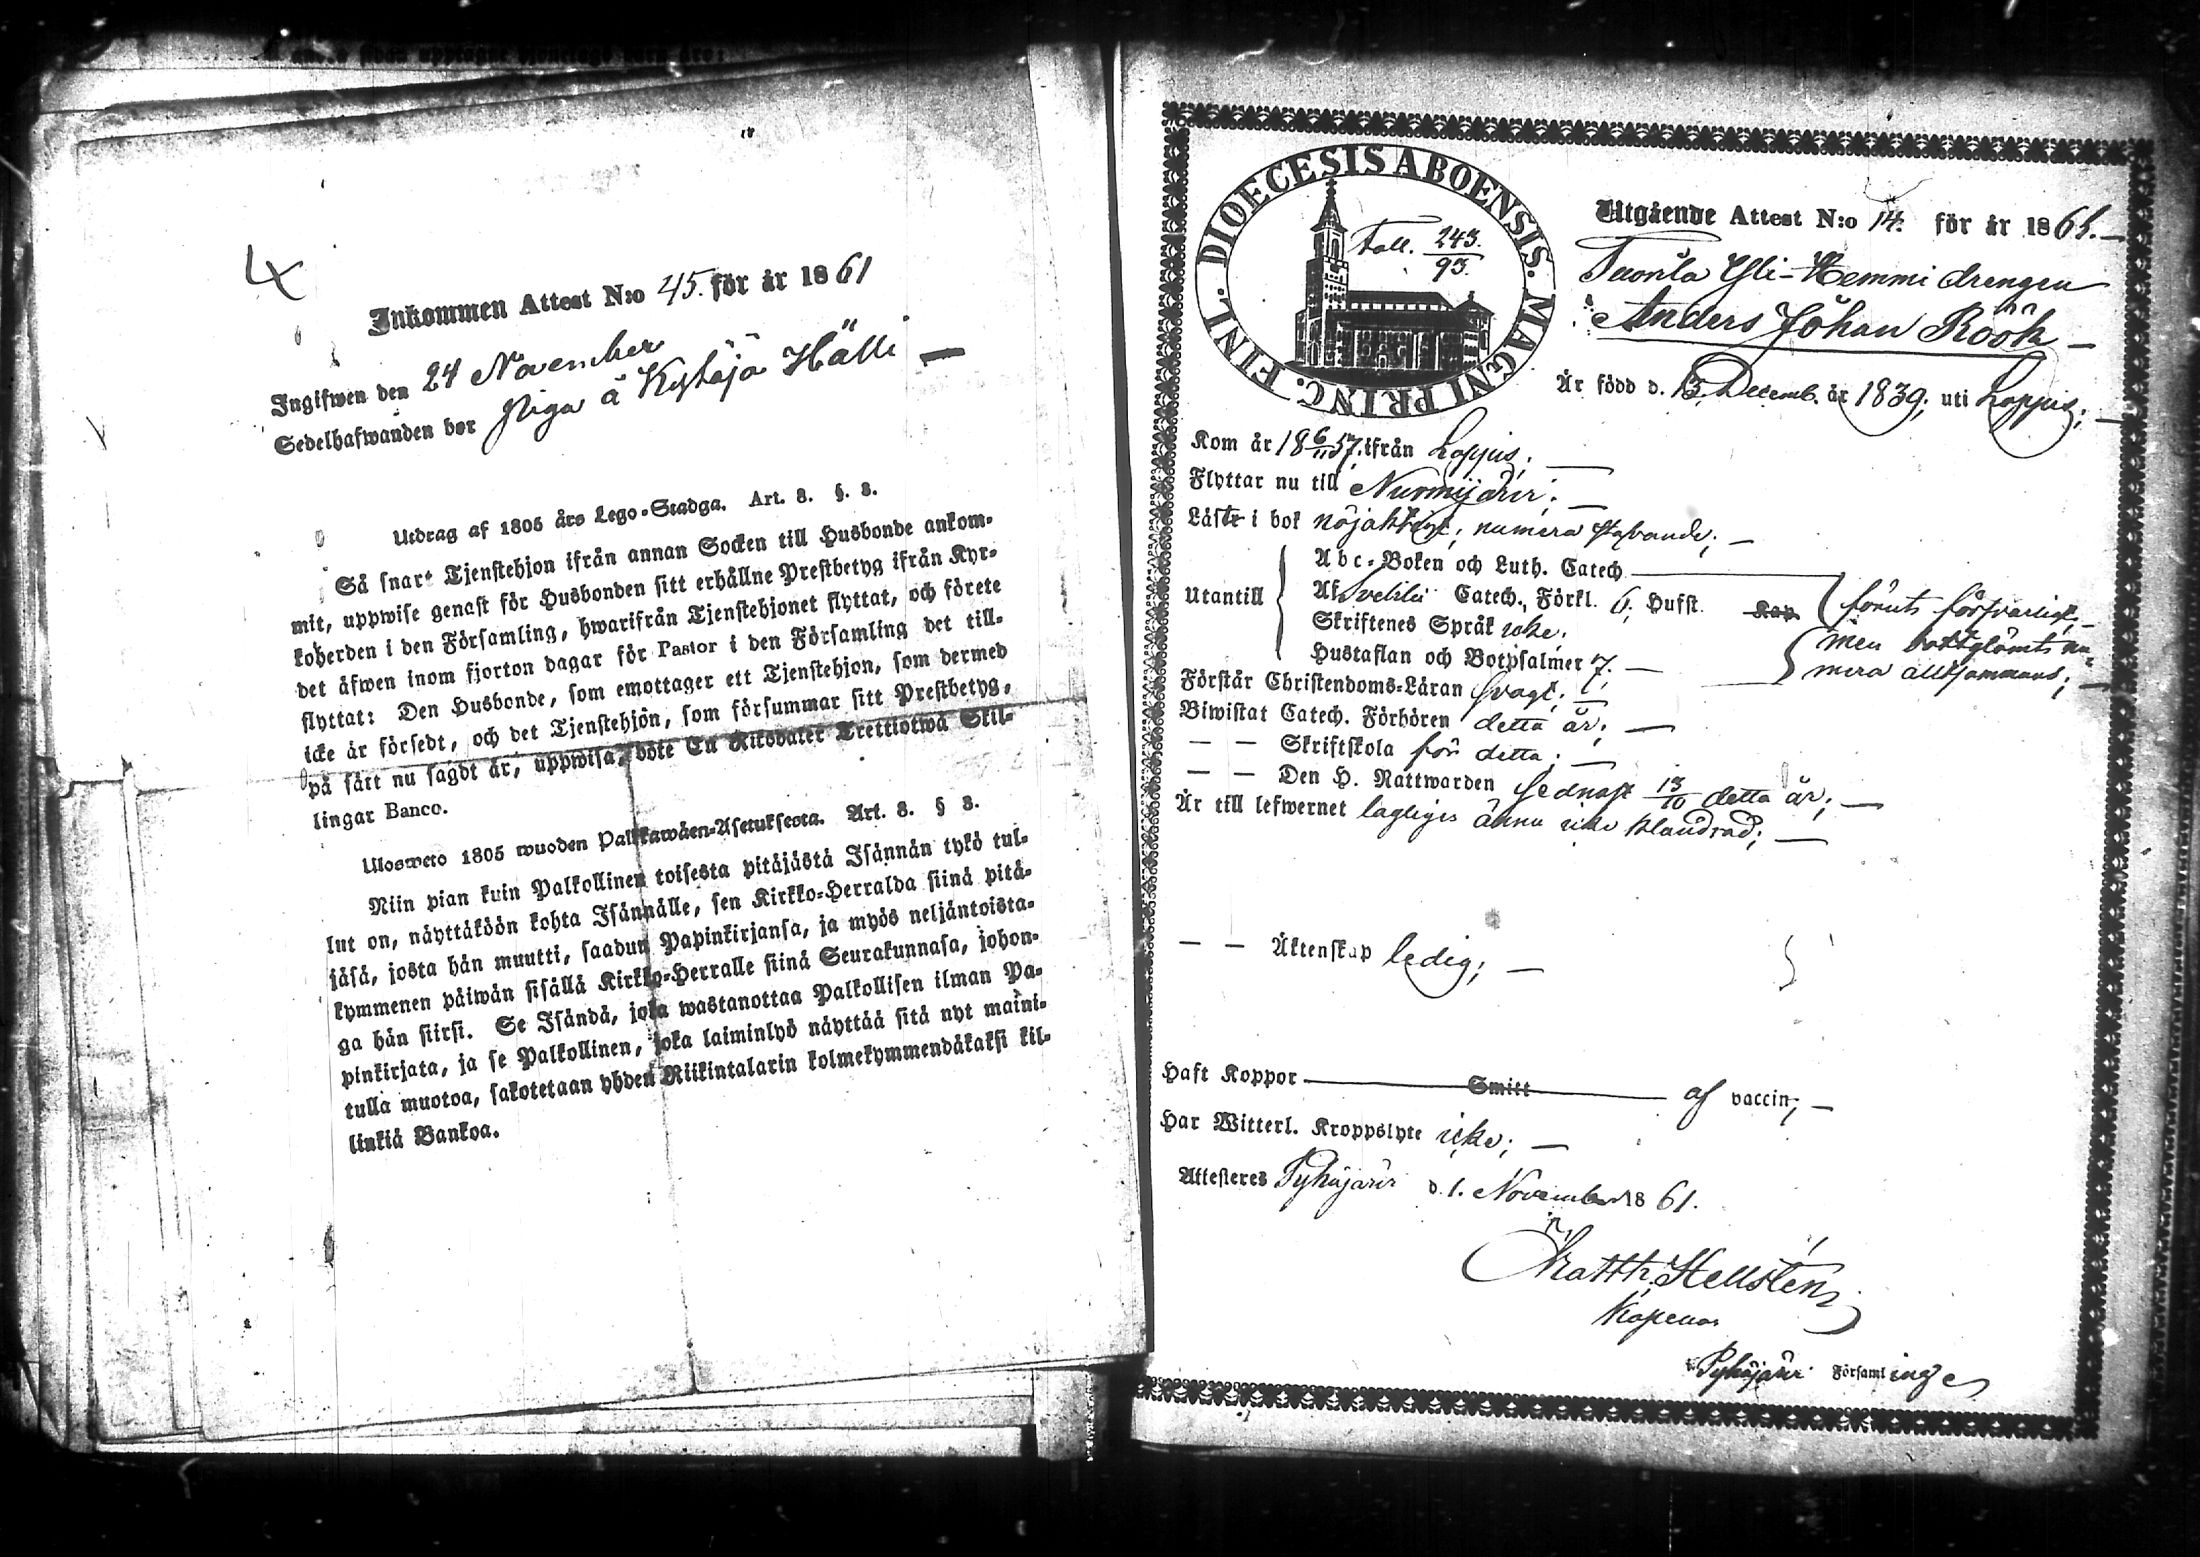 Inkommen Attest N:o 45. för år 1861
Ingifwen den 24 November
Sedelhafwanden bor Piga å Kytäjä Hälli
Utdrag af 1805 års Lego-Stadga. Art. 8. §. 3.
Så snart Tjenstehjon ifrån annan Socken till Husbonde ankom-
mit, uppwise genast för Husbonden sitt erhållne Prestbetyg ifrån Kyr-
koherden i den Församling, hwarifrån Tjenstehjonet flyttat, och förete
det äfwen inom fjorton dagar för Pastor i den Församling det till-
flyttat: Den Husbonde, som emottager ett Tjenstehjon, som dermed
icke är försedt, och det Tjenstehjon, som försummar sitt Prestbetyg,
på sätt nu sagdt är, uppwisa, böte En Riksdaler Trettiotwå Skil-
lingar Banco.
Ulosweto 1805 wuoden Palkkawäen-Asetuksesta. Art. 8. § 3.
Niin pian kuin Palkollinen toisesta pitäjästä Isännän tykö tul-
lut on, näyttäköön kohta Isännälle, sen Kirkko-Herralda siinä pitä-
jäsä, josta hän muutti, saadun Papinkirjansa, ja myös neljäntoista-
kymmenen päiwän sisällä Kirkko-Herralle siinä Seurakunnasa, johon-
ga hän siirsi. Se Isändä, joka wastanottaa Palkollisen ilman Pa-
pinkirjata, ja se Palkollinen, joka laiminlyö näyttää sitä nyt maini-
tulla muotoa, sakotetaan yhden Riikintalarin kolmekymmendäkaksi kil-
linkiä Bankoa.
DIOECESIS ABOENSIS. MAGNI PRINC. FINL.
Foll. 243. 93.
Utgående Attest N:o 14. för år 1861.
Tuorila Yli-Hemmi drengen
Anders Johan Röök
Är född d. 13 Decemb. år 1839; uti Loppis;
Kom år 18 6/11 57. ifrån Loppis;
Flyttar nu till Nurmijärvi;
Läste i bok nöjaktigt; numera stafvande;
Utantill
Abc-Boken och Luth. Catech
Af Svebilii Catech. Förkl. 6; Husst. Kap
Skriftenes Språk icke.
Hustaflan och Botpsalmer 7.
förut försvarligt,
men bortglömts nu-
mera alltsammans;
Förstår Christendoms-Läran svagt;
Biwistat Catech. Förhören detta år;
— — Skriftskola för detta;
— — Den H. Nattwarden sednast 13/10 detta år;
Är till lefwernet lagligen ännu icke klandrad;
— — Äktenskap ledig;
Haft Koppor Smitt af vaccin;
Har Witterl. Kroppslyte icke;
Attesteres Pyhäjärvi d. 1. November 1861.
Matth. Hellsten
Pyhäjärvi Församlings